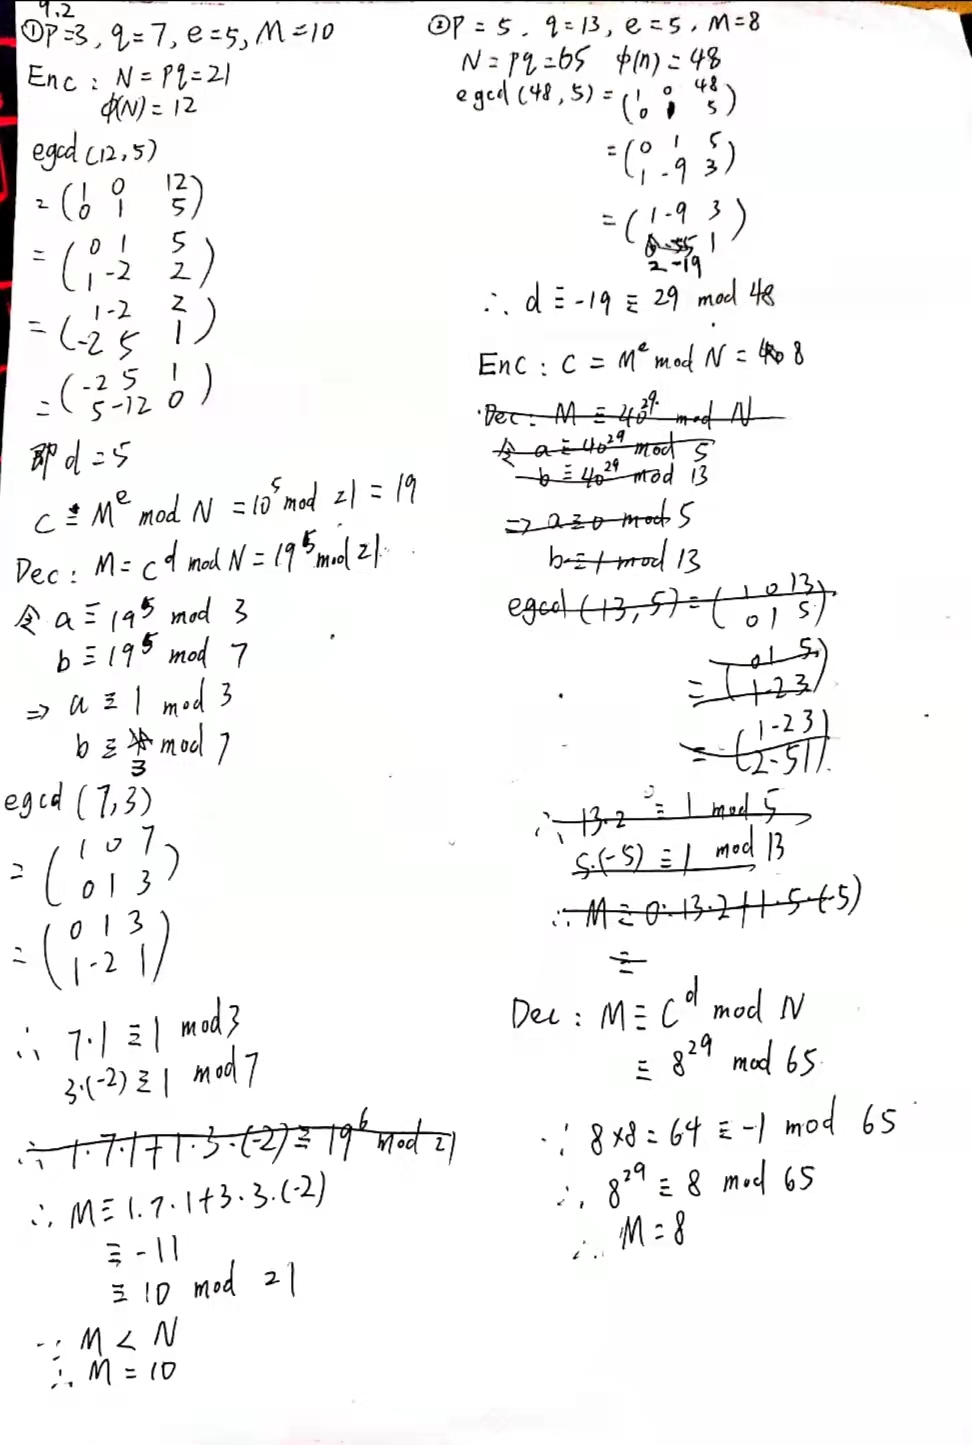 9.2
① P=3, q=7, e=5, M=10
Enc: N=Pq=21
ϕ(N)=12
egcd(12,5)
=(1 0 12
0 1 5)
=(0 1 5
1 -2 2)
=(1 -2 2
-2 5 1)
=(-2 5 1
5 -12 0)
即 d=5
C ≡ M^e mod N = 10^5 mod 21 = 19
Dec: M=C^d mod N = 19^5 mod 21
令 a ≡ 19^5 mod 3
b ≡ 19^5 mod 7
⇒ a ≡ 1 mod 3
b ≡ 3 mod 7
egcd(7,3)
=(1 0 7
0 1 3)
=(0 1 3
1 -2 1)
∴ 7·1 ≡ 1 mod 3
3·(-2) ≡ 1 mod 7
∴ 1·7·1+1·3·(-2) ≡ 19^6 mod 21
∴ M ≡ 1·7·1+3·3·(-2)
≡ -11
≡ 10 mod 21
∵ M < N
∴ M = 10
② P=5, q=13, e=5, M=8
N=Pq=65 ϕ(n)=48
egcd(48,5)=(1 0 48
0 1 5)
=(0 1 5
1 -9 3)
=(1 -9 3
2 -19 1)
∴ d ≡ -19 ≡ 29 mod 48
Enc: C = M^e mod N = 8
Dec: M ≡ 40^29 mod N
令 a ≡ 40^29 mod 5
b ≡ 40^29 mod 13
⇒ a ≡ 0 mod 5
b ≡ 1 mod 13
egcd(13,5)=(1 0 13
0 1 5)
=(0 1 5
1 -2 3)
=(1 -2 3
2 -5 1)
∴ 13·2 ≡ 1 mod 5
5·(-5) ≡ 1 mod 13
∴ M ≡ 0·13·2+1·5·(-5)
≡
Dec: M ≡ C^d mod N
≡ 8^29 mod 65
∵ 8×8=64 ≡ -1 mod 65
∴ 8^29 ≡ 8 mod 65
∴ M=8